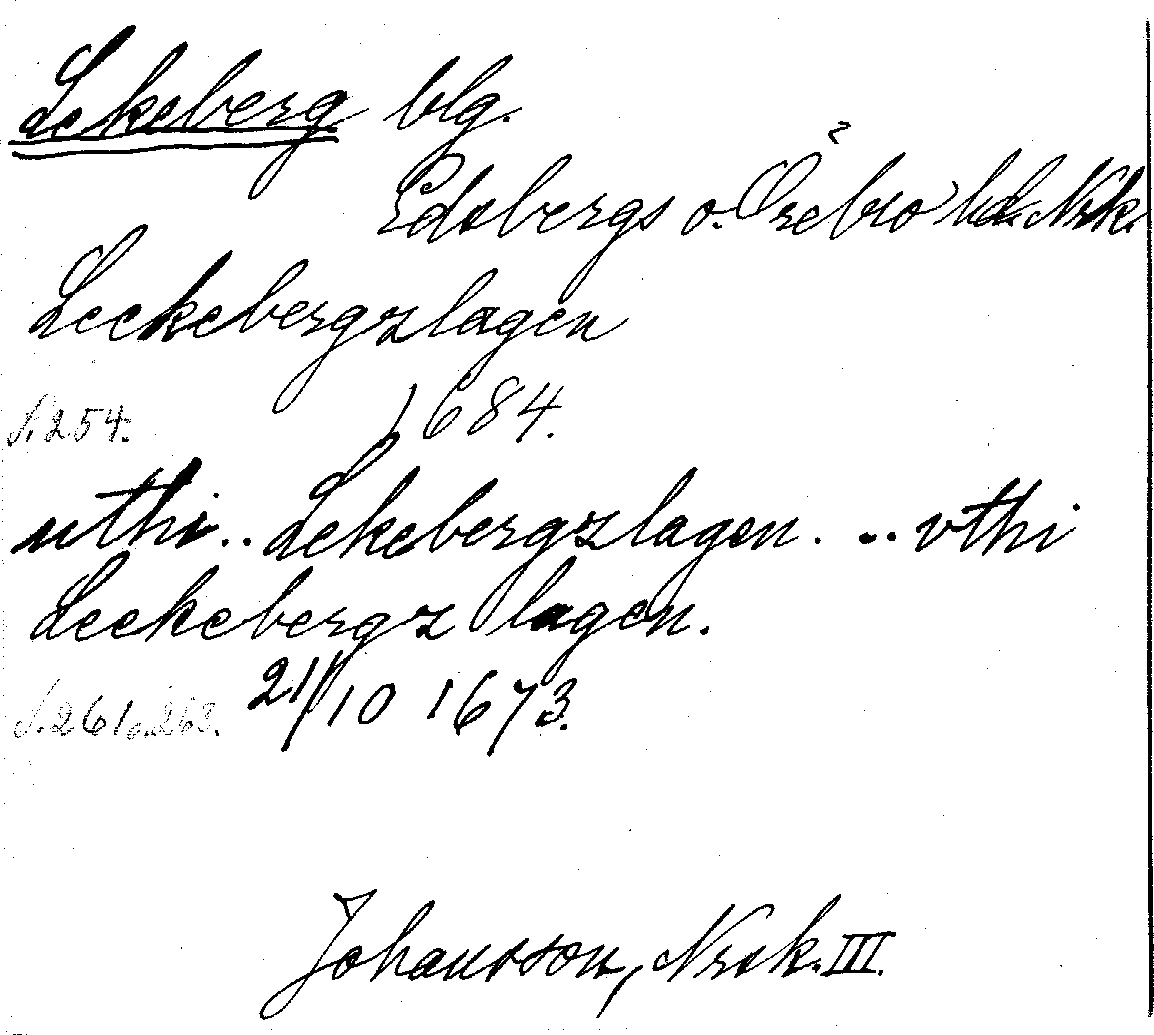 Lekeberg blg.
Edsbergs o. Örebro hd. Nrk.
Leckebergzlagen
S. 254. 1684.
uthi .. Lekebergzlagen. .. vthi
Leckebergz lagen.
S. 261 o. 263. 21/10 1673.
Johansson, Nrsk. III.